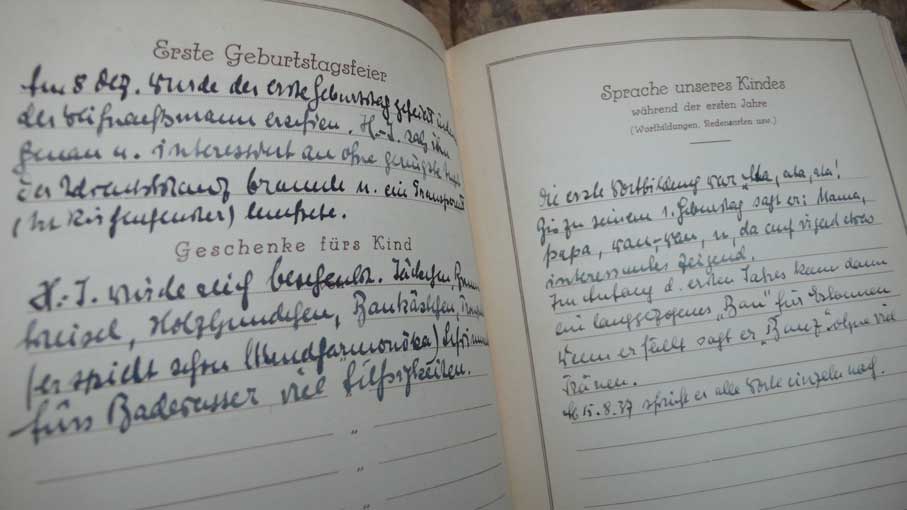 Erste Geburtstagsfeier
Am 8 Dez. wurde der erste Geburtstag gefeiert
der Weihnachtsmann erschien. H.-J. sah ihn
genau u. interessiert an ohne geringste
Der Adventskranz brannte u. ein Transparent
(Kirchenfenster) leuchtete.
Geschenke fürs Kind
H.-J. wurde reich beschenkt.
kreisel, Holzhündchen, Baukästchen,
(er spielt schon Mundharmonika)
fürs Badewasser viel Süssigkeiten.
"
"
Sprache unseres Kindes
während der ersten Jahre
(Wortbildungen, Redensarten usw.)
Die erste Wortbildung war ata, ata!
Bis zu seinem 1. Geburtstag sagt er: Mama,
papa, wau-wau, u. da auf irgend etwas
interessantes zeigend.
Im Anfang d. ersten Jahres kam dann
ein langgezogenes „Bau" für
Wenn er fällt sagt er „Bauz" ohne viel
Tränen.
Ab 15.8.37 spricht er alle Worte einzeln nach.